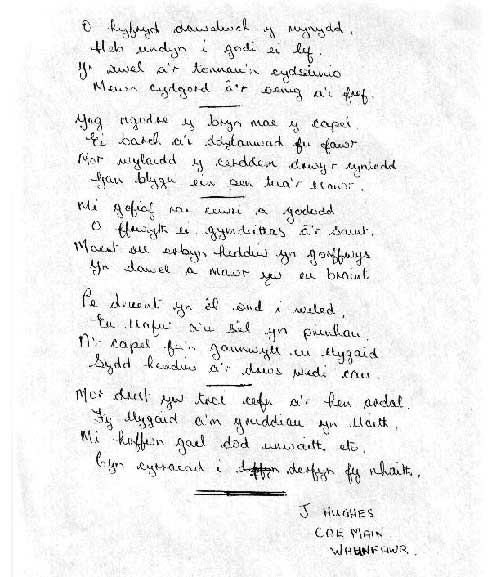 O hyfryd dawelwch y mynydd,
Heb undyn i godi ei lef
Yr awel a'r tonnau'n cydseinio
Mewn cydgord â'r a'i
Yng y bryn mae y capel
Ei barch a'i ddylanwad fu fawr
Mor wylaidd y cerddem drwy'r cyntedd
Gan blygu ein pen tua'r llawr.
Mi gofiaf rai a gododd
O ffrwyth ei gymdeithas â'r saint,
Maent oll erbyn heddiw yn gorffwys
Yn dawel a mawr yw eu braint
Pe doent yn ôl ond i weled,
Eu llafur a'u sêl yn prinhau.
A'r capel fu'n gannwyll eu llygaid
Sydd heddiw a'r drws wedi cau
Mor drist yw troi cefn a'r hen ardal.
Fy llygaid a'm gruddiau yn llaith.
Mi hoffwn gael dod unwaith eto
Cyn cyrraedd i derfyn fy nhaith.
J HUGHES
COE MAIN